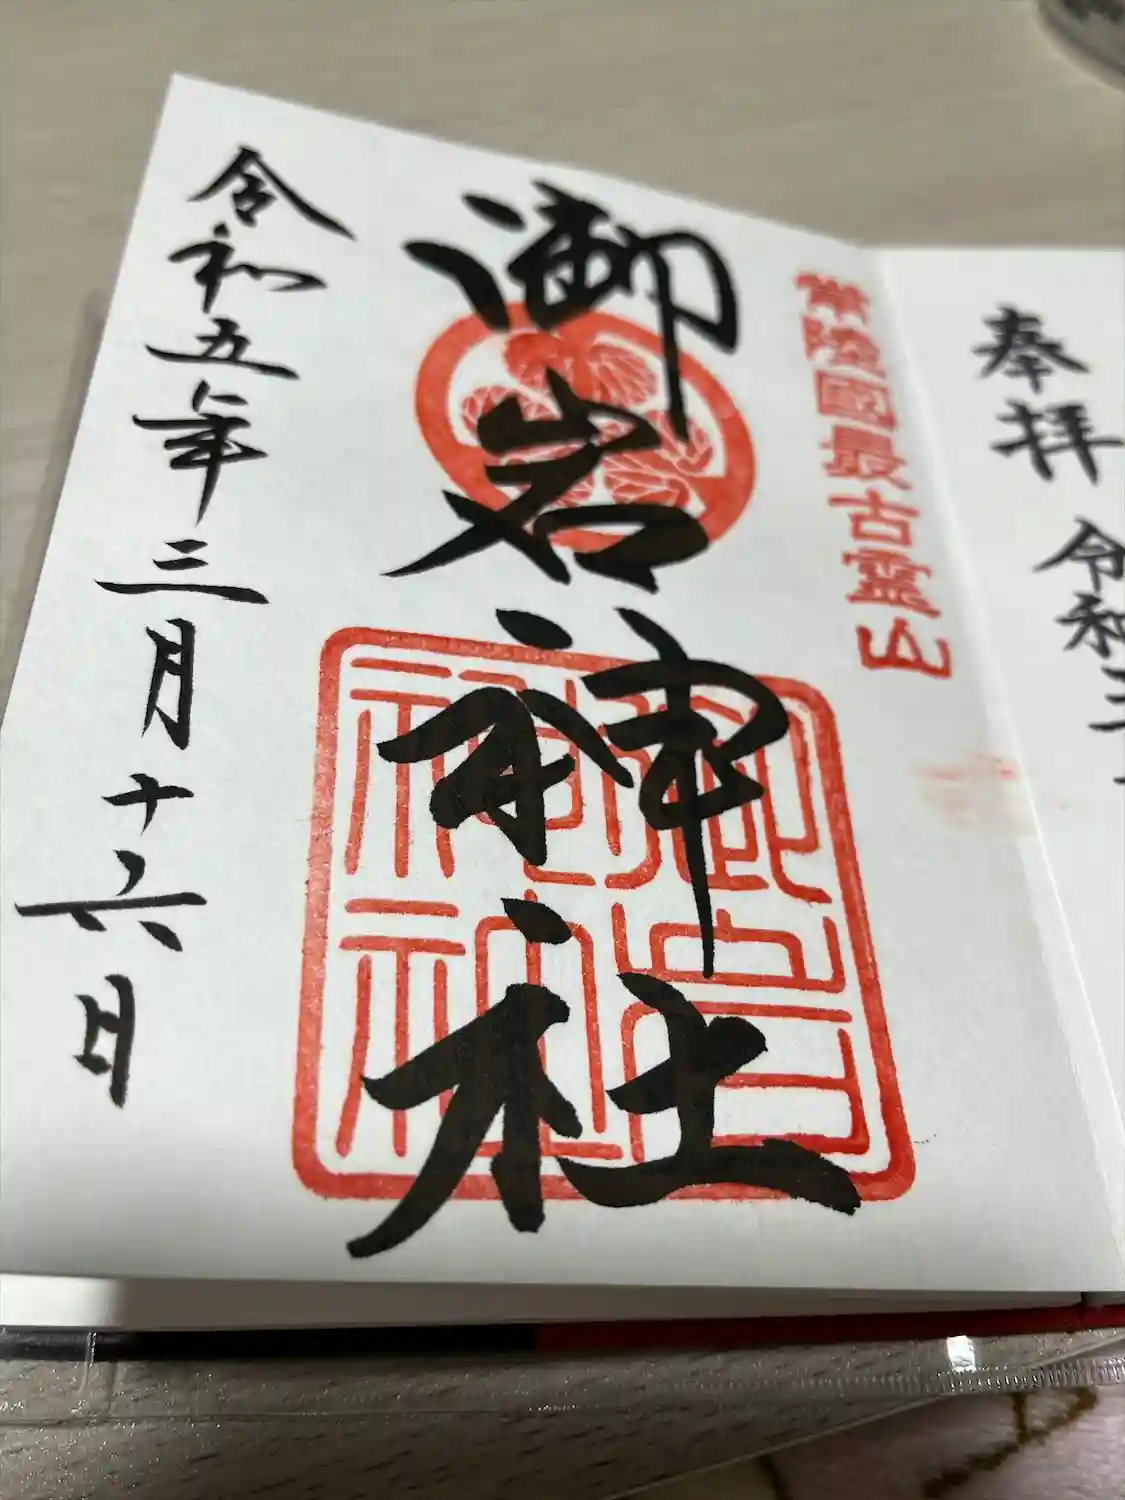 奉拝
令和三
常陸國最古霊山
御岩神社
御岩神社
令和五年三月十六日